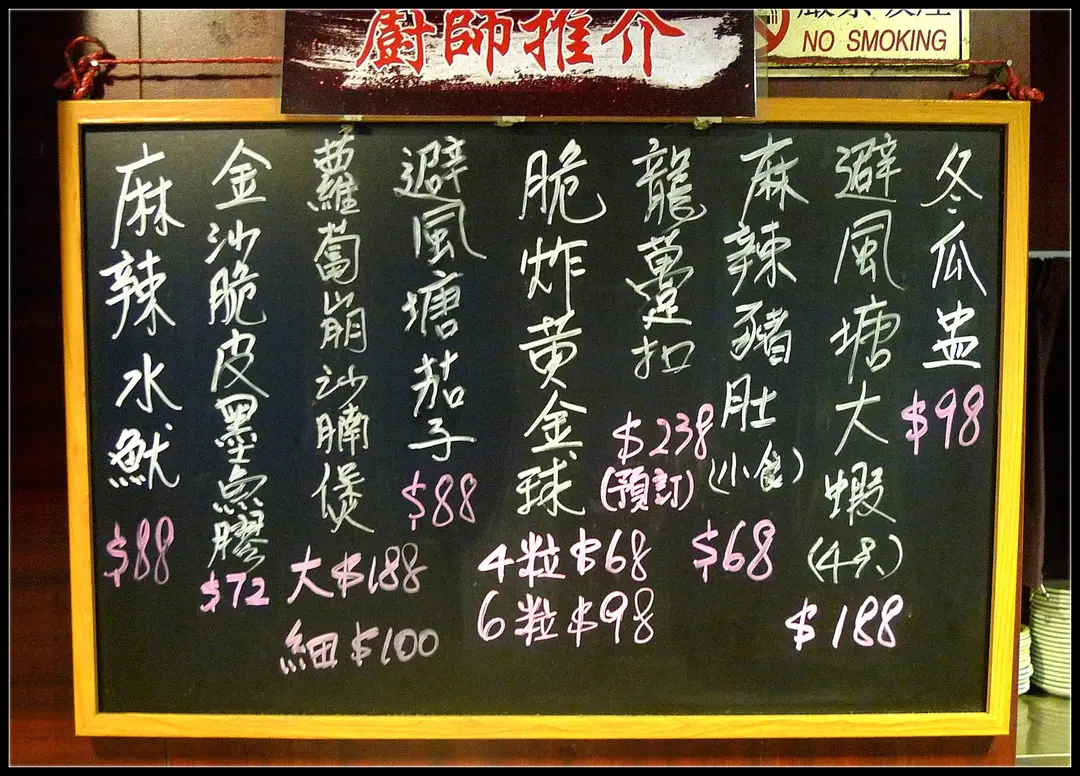 廚師推介
NO SMOKING
冬瓜盅
$98
避風塘大蝦
(4只)
$188
麻辣豬肚
(小食)
$68
龍躉扣
$238
(預訂)
脆炸黃金球
4粒$68
6粒$98
避風塘茄子
$88
蘿蔔崩沙腩煲
大$188
細$100
金沙脆皮墨魚膠
$72
麻辣水魷
$88